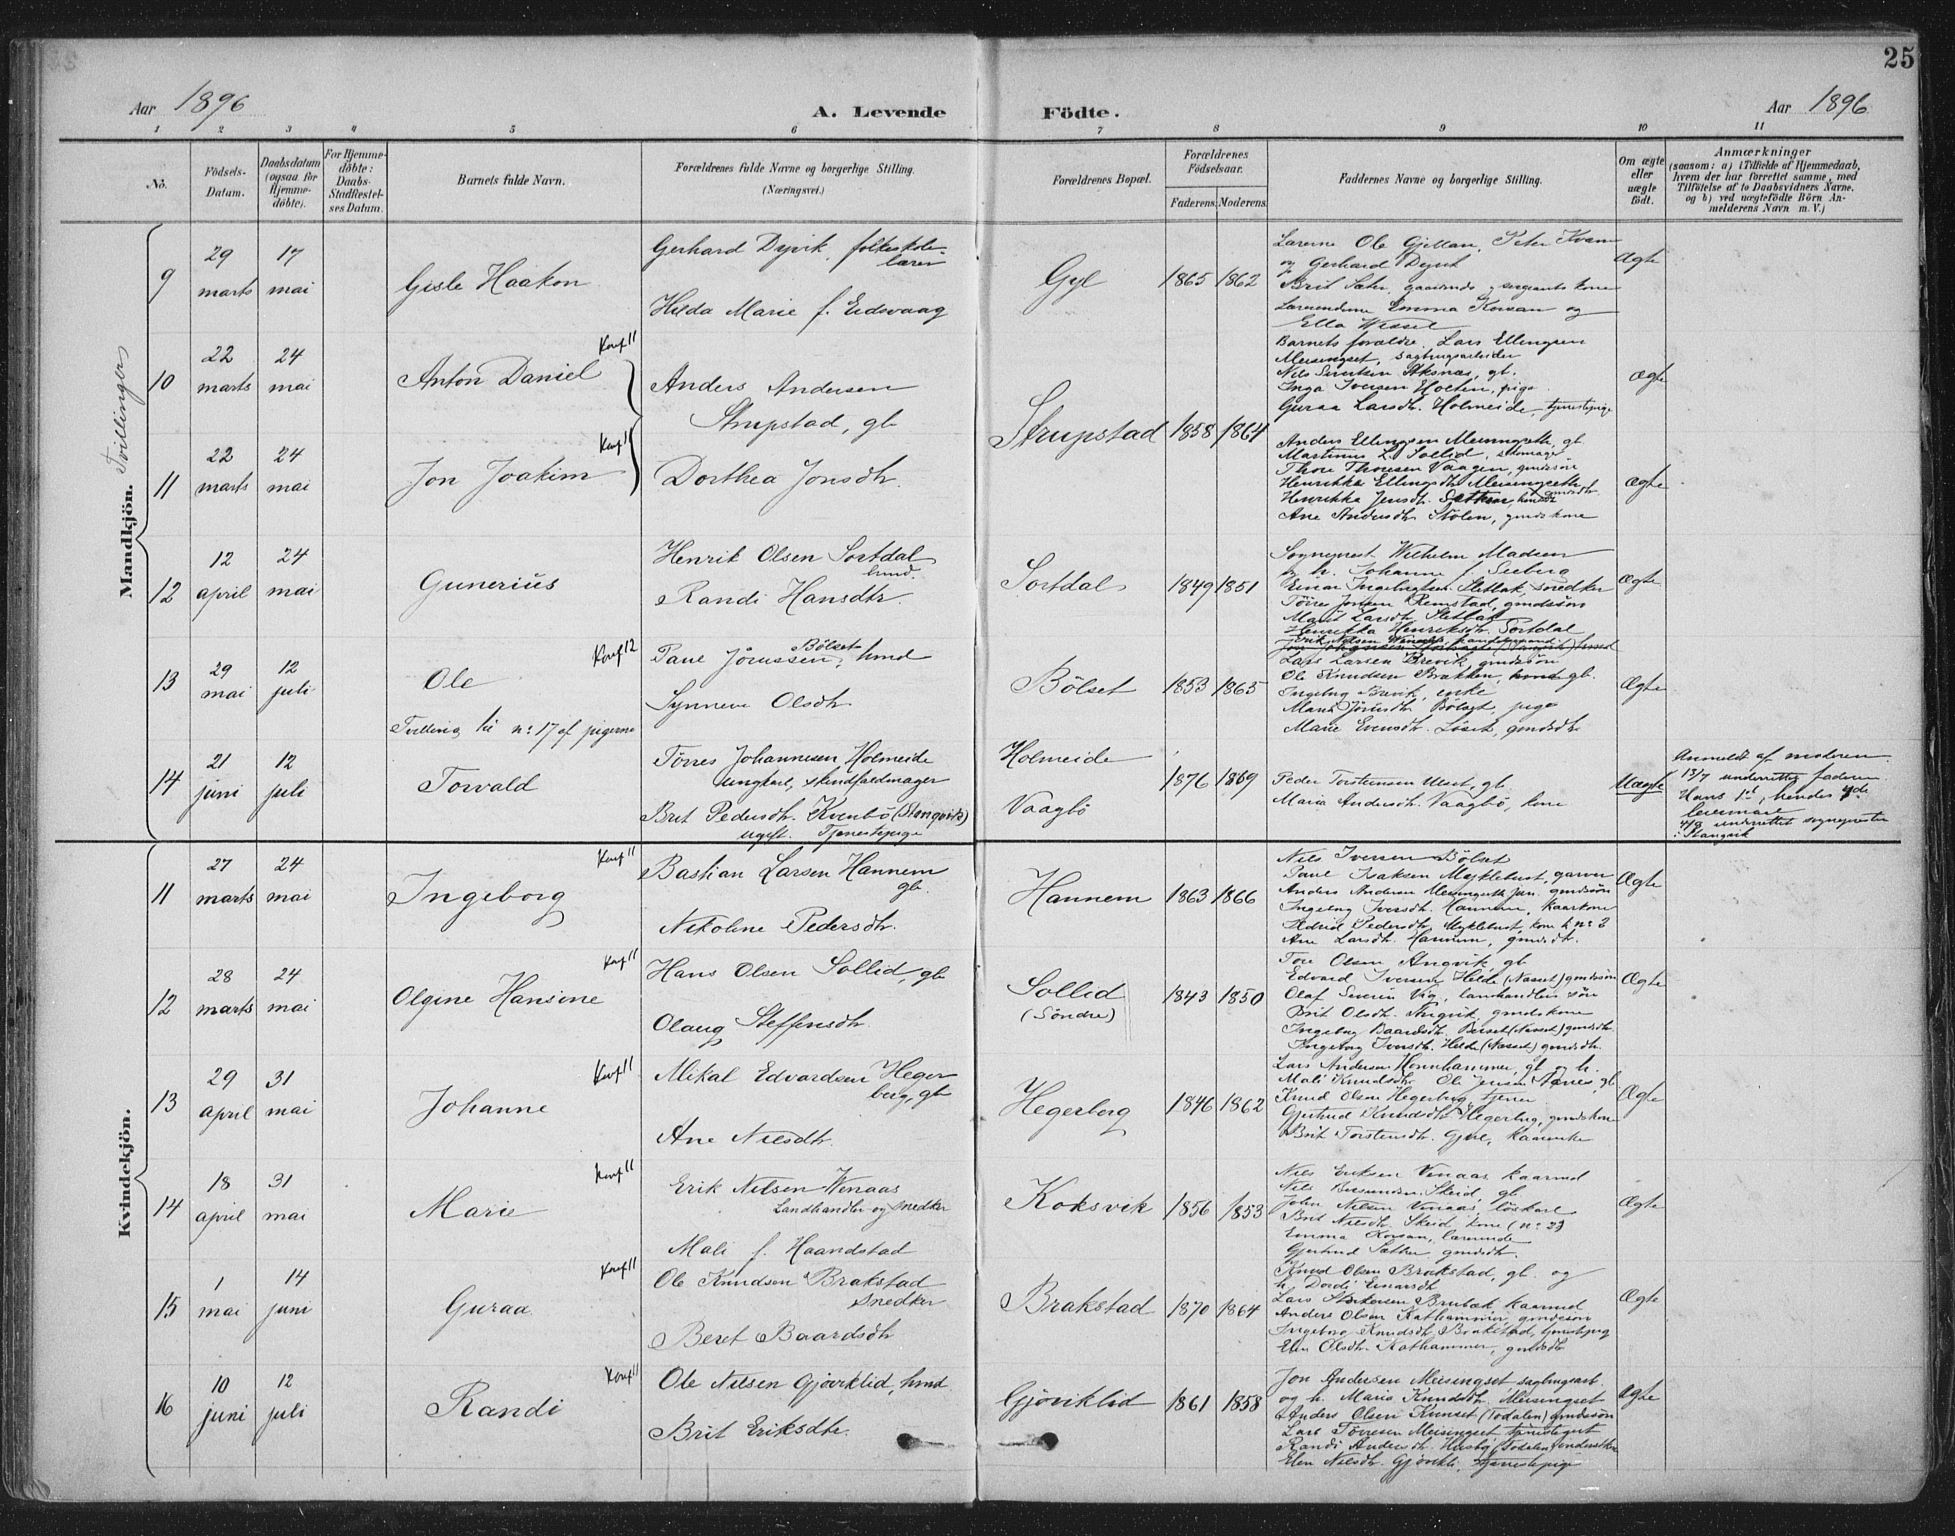 25
Aar 1896
A. Levende
Födte.
Aar 1896
1 2 3 4 5 6 7 8 9 10 11
No.
Födsels-Datum.
Daabsdatum (ogsaa for Hjemme-döbte).
For Hjemme-döbte: Daabs-Stadfæstel-ses Datum.
Barnets fulde Navn.
Forældrenes fulde Navne og borgerlige Stilling.
(Næringsvei.)
Forældrenes Bopæl.
Forældrenes Födselsaar.
Faderens. Moderens.
Faddernes Navne og borgerlige Stilling.
Om ægte eller uægte födt.
Anmærkninger
(saasom: a) i Tilfælde af Hjemmedaab,
hvem der har forrettet samme, med
Tilföielse af to Daabsvidners Navne,
og b) ved uægtefödte Börn An-
melderens Navn m. V.)
Mandkjön.
Tvillinger
9
29 marts
17 mai
Gisle Haakon
Gerhard Dyrik, folkeskole-
lærer
Hilda Marie f. Eidsvaag
Gyl
1865 1862
Lærerne Ole Gjellan, Peter Kvam
og Gerhard Dyrik
Lærerinderne Emma Korsan og
Ella Wessel
Ægte
10
22 marts
24 mai
Konf 11
Anton Daniel
Anders Andersen
Strupstad, gb
Strupstad
1858 1864
Barnets forældre, Lars Ellingsen
Meisingset, sagbrugsarbeider
Nils Sivertsen Aksnæs, gb.
Inga Iversen Holten, pige
Guraa Larsdtr. Holmeide, tjenestepige
Ægte
11
22 marts
24 mai
Konf 11
Jon Joakim
Dorthea Jonsdtr.
Anders Ellingsen Meisingseth, gb
Martinus L. Sollid, skomager
Thore Thoresen Vaagen, gmdssön
Henrikka Ellingsdtr Meisingseth
Ane Andersdtr Stölen, gmdskone
Ægte
12
12 april
24 mai
Gunerius
Henrik Olsen Sortdal
hmd.
Randi Hansdtr.
Sortdal
1849 1851
Sogneprest Wilhelm Madsen
og h. Johanne f. Seeberg
Einar Ingebrigtsen Sletbak, snedker
Törre Jonsen Remstad, gmdssön
Marit Larsdtr. Sletbak
Henrikka Henriksdtr. Sortdal
Ægte
13
29 mai
12 juli
Konf 12
Ole
Tvilling til no. 17 af pigerne
Bölset
Paul Jörussen, hmd
Synneve Olsdtr
Bölset
1853 1865
Lars Larsen Brevik, gmdssön
Ole Knudsen Brakken, gb.
Ingebrg Brevik, enke
Marit Jörusdtr Bölset, pige
Marie Evensdtr. Löset, gmdsdtr
Ægte
14
21 juni
12 juli
Torvald
Törres Johannesen Holmeide
ungkarl, skindfeldmager
Brit Pedersdtr. Kvenbö (Stangvik)
ugift. Tjenestepige
Holmeide
Vaagbö
1876 1869
Peder Torstensen Ulset, gb.
Maria Andersdtr. Vaagbö, kone
Uægte
Anmeldt af moderen
13/7 underrettes faderen
Hans 1ste, hendes 4de
leiermaal
4/8 underrettet sognepresten
i Stangvik
Kvindekjön.
11
27 marts
24 mai
Konf 11
Ingeborg
Bastian Larsen Hannem
gb.
Nikoline Pedersdtr.
Hannem
1863 1866
Nils Iversen Bölset
Paul Isaksen Myklebust, garver
Anders Andersen Meisingseth jun. gmdssön
Ingebrg Iversdtr. Hannem, kaarkone
Astrid Pedersdtr. Myklebust, kone t. no. 2
Ane Larsdtr. Hannem, gmdsdtr.
Ægte
12
28 marts
24 mai
Konf 11
Olgine Hansine
Hans Olsen Sollid, gb
Olaug Steffensdtr.
Sollid
(Söndre)
1843 1850
Tore Olsen Angvik, gb
Edvard Iversen Helde (Nesset) gmdssön
Olaf Severin Vig, landhandlers sön
Brit Olsdtr. Angvik, gmdskone
Ingebrg Baardsdtr. Berset (Nesset) gmdsdtr.
Ingebrg Iversdtr. Helde (Nesset) gmdsdtr.
Ægte
13
29 april
31 mai
Konf 11
Johanne
Mikal Edvardsen Heger-
berg, gb
Ane Nilsdtr.
Hegerberg
1846 1862
Lars Andersen Hornhammer, gb og h.
Mali Knudsdtr. Ole Jensen Aanes, gb
Knud Olsen Hegerberg, tjener
Gjertrud Knudsdtr Hegerberg, gmdskone
Brit Torstensdtr. Gjul, kaarenke
Ægte
14
18 april
31 mai
Konf 11
Marie
Erik Nilsen Venaas
Landhandler og snedker
Mali f. Haandstad
Koksvik
1856 1853
Nils Eriksen Venaas kaarmd
John Nilsen Venaas, löskarl
Brit Nilsdtr. Skeid, kone (no. 2)
Emma Korsan, lærerinde
Gjertrud Sæther gmdsdtr.
Ægte
15
1 mai
14 juni
Konf 11
Guraa
Ole Knudsen Brakstad
Snedker
Beret Baardsdtr
Brakstad
1870 1864
Knud Olsen Brakstad, gb. og
h. Dordi Einarsdtr
Anders Olsen Kathammer, gmdssön
Ingeborg Knudsdtr. Brakstad, tjenestepig
Elen Olsdtr. Kathammer, gmdsdtr
Ægte
16
10 juni
12 juli
Konf 11
Randi
Ole Nilsen Gjöviklid, hmd
Brit Eriksdtr.
Gjöviklid
1861 1858
Jon Andersen Meisingset sagbrugsarb.
og h. Maria Knudsdtr. Meisingset
Anders Olsen Kvinset (Todalen) gmdssön
Lars Törresen Meisingset tjenestegut
Elen Nilsdtr. Gjövikli, tjenestepige
Ægte